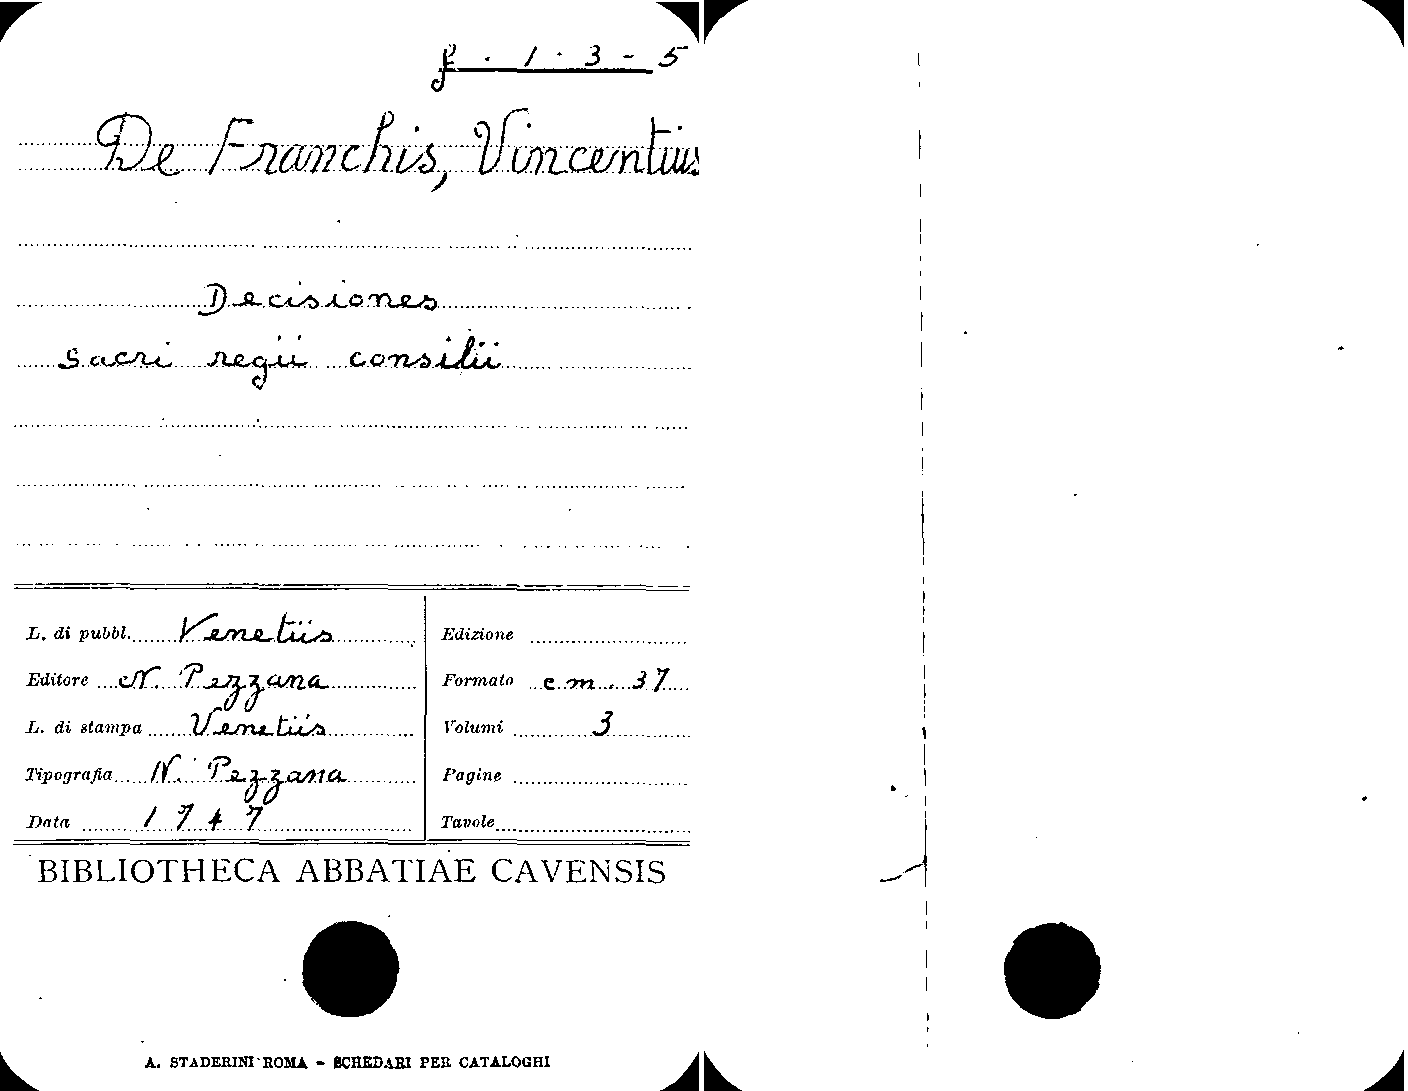 f. 1. 3-5
De Franchis, Vincentius
Decisiones
sacri regii consilii
L. di pubbl. Venetiis
Editore N. Pezzana
L. di stampa Venetiis
Tipografia N. Pezzana
Data 1747
Edizione
Formato cm. 37
Volumi 3
Pagine
Tavole
BIBLIOTHECA ABBATIAE CAVENSIS
A. STADERINI ROMA - SCHEDARI PER CATALOGHI